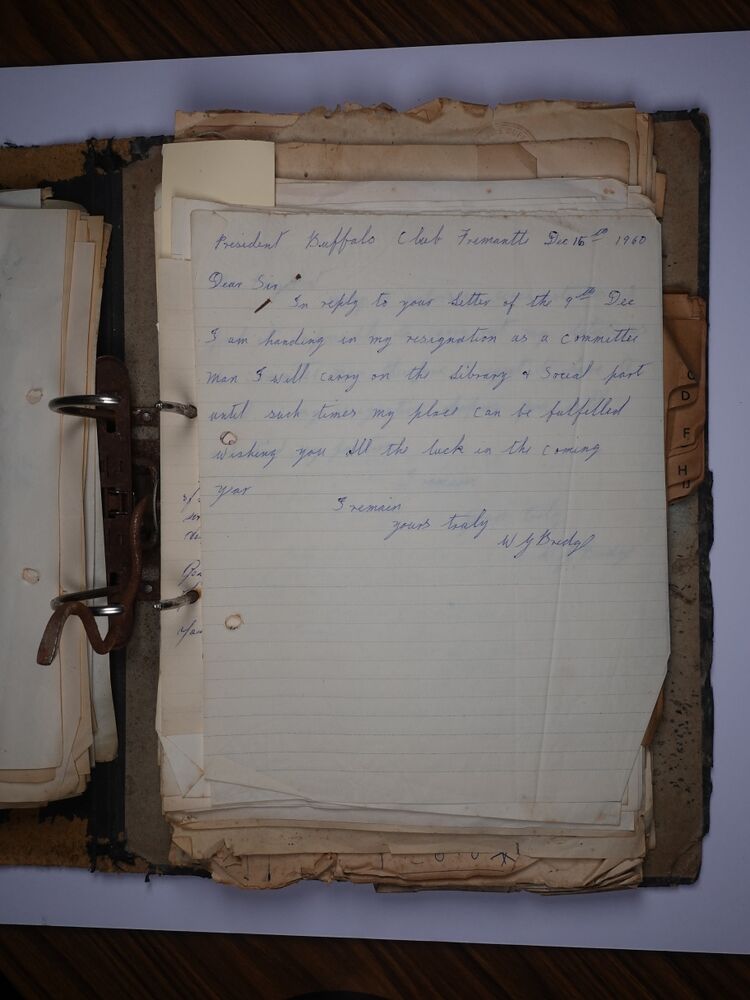 President Buffalo Club Fremantle Dec 15th 1960
Dear Sir
In reply to your Letter of the 9th Dec
I am handing in my resignation as a Committee
Man I will carry on the Library & Social part
until such times my place can be fulfilled
Wishing you All the luck in the Coming
year
I remain
yours truly
W G Bredge
C
D
F
H